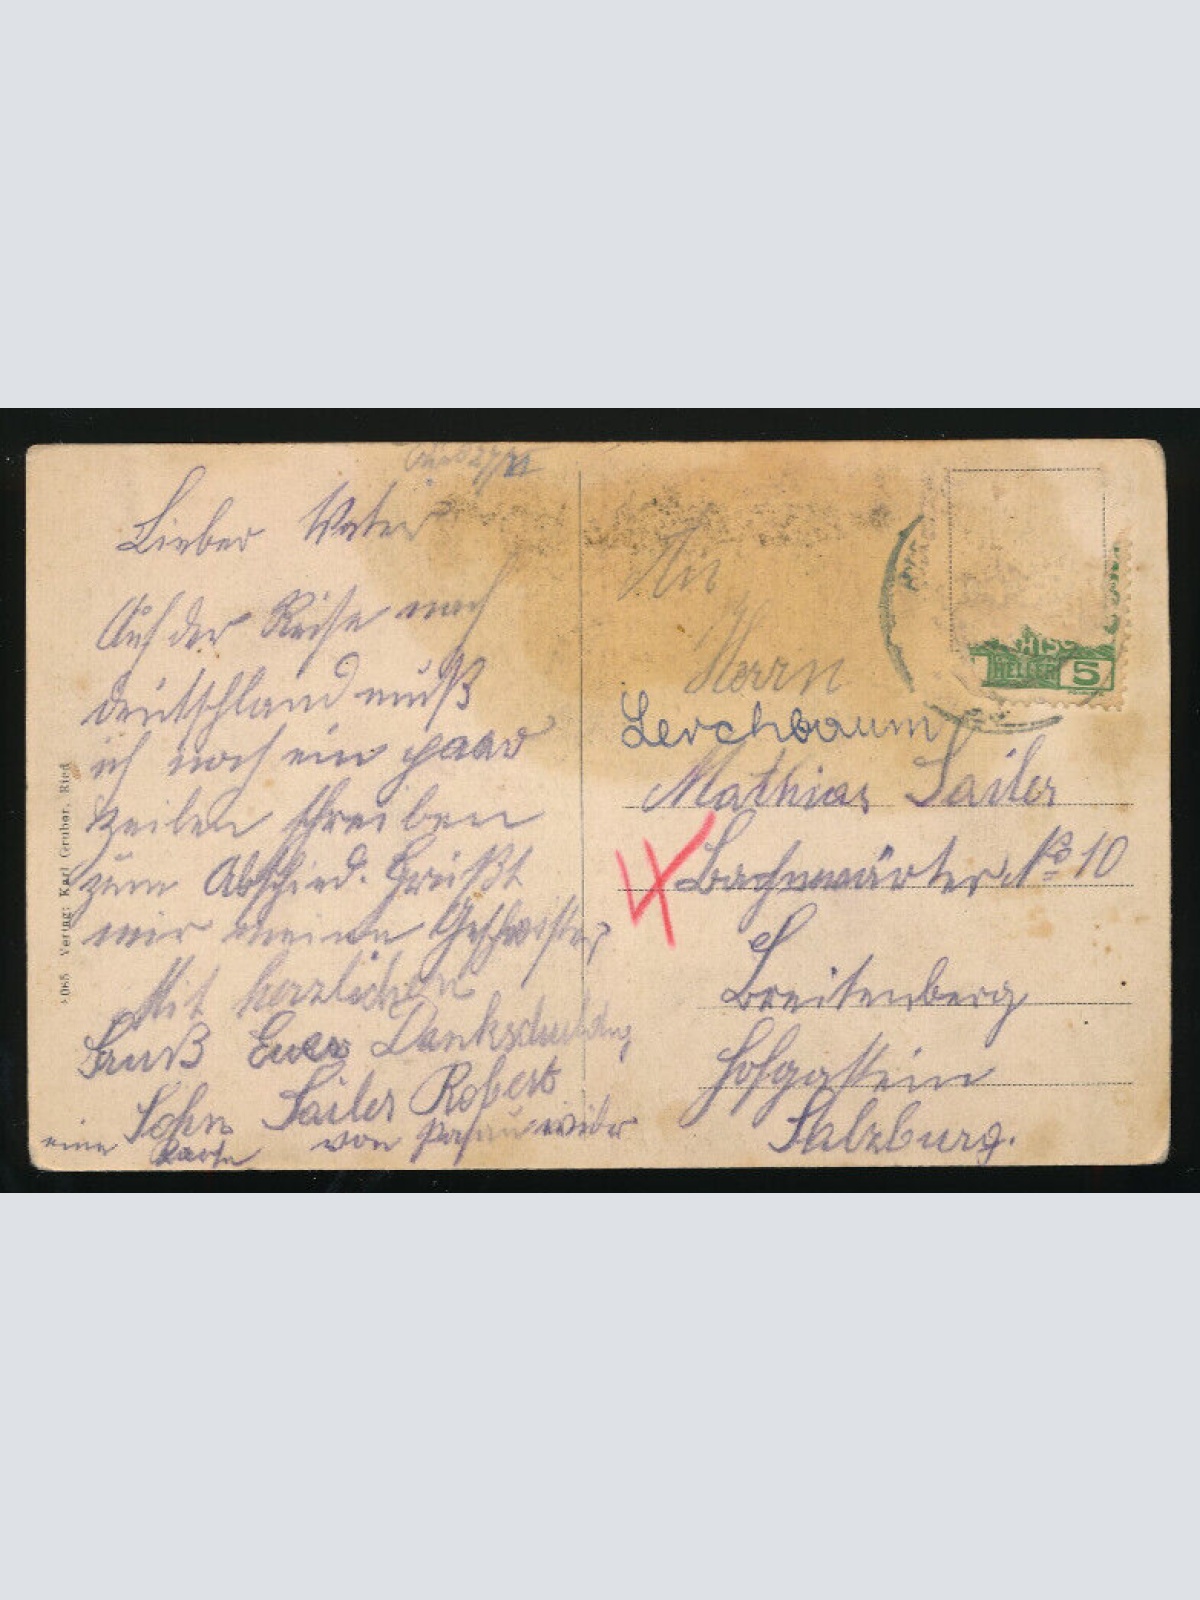 Lieber Vater
Auf der Reise nach
Deutschland muß
ich noch ein paar
Zeilen schreiben
zum Abschied. Grüßt
mir meine Geschwister
Mit herzlichen
Gruß Euer Dankschuldig
Sohn Sailer Robert
von Passau wider
eine Karte
Verlag: Karl Gruber, Ried
An
Herrn
Lerchbaum
Mathias Sailer
Bachnwärter No 10
Breitenberg
Hofgastein
Salzburg.
HELLER 5